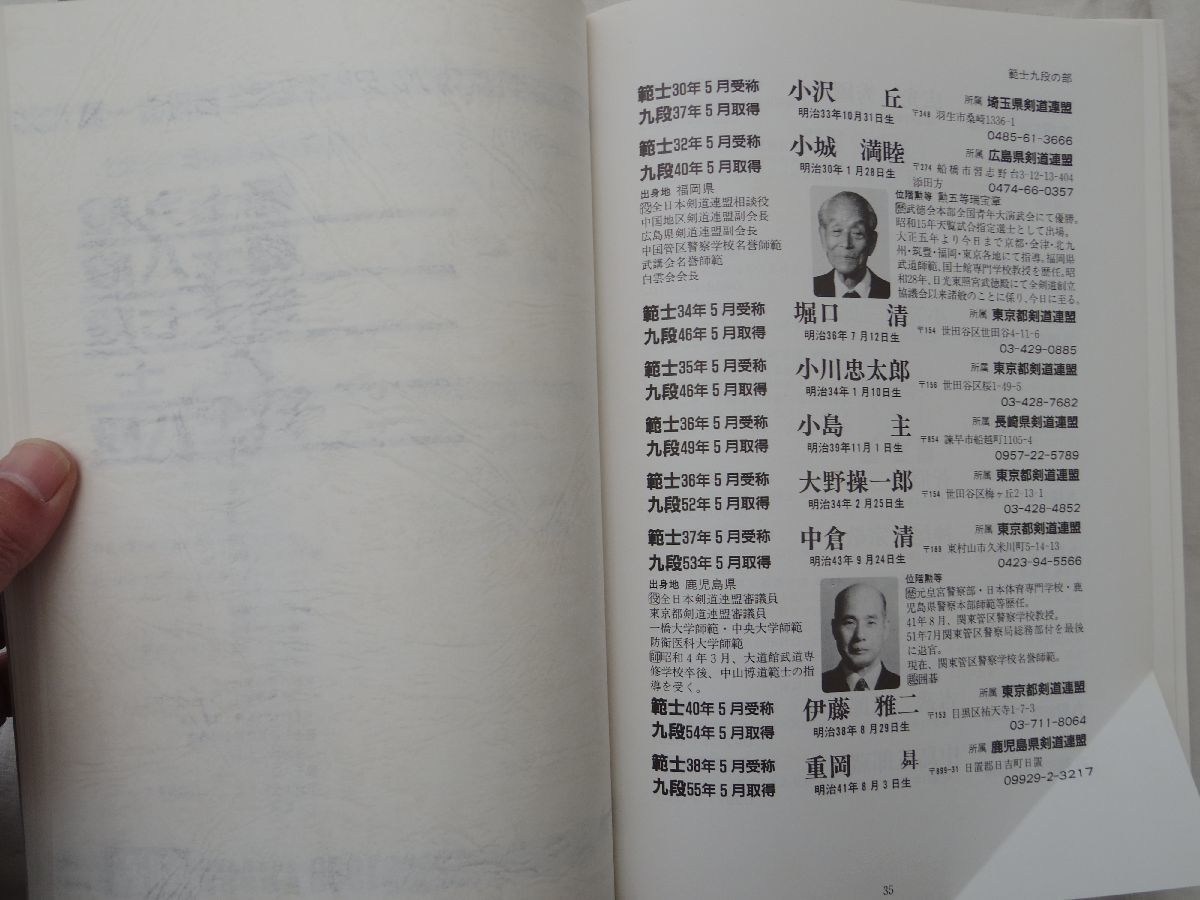 範士九段の部
範士30年5月受称
九段37年5月取得
小沢 丘
明治33年10月31日生
所属 埼玉県剣道連盟
〒348 羽生市桑崎1336-1
0485-61-3666
範士32年5月受称
九段40年5月取得
小城 満睦
明治30年1月28日生
所属 広島県剣道連盟
〒274 船橋市習志野台3-12-13-404
添田方
0474-66-0357
出身地 福岡県
役全日本剣道連盟相談役
中国地区剣道連盟副会長
広島県剣道連盟副会長
中国管区警察学校名誉師範
武講会名誉師範
白雲会会長
位階勲等 勲五等瑞宝章
歴武徳会本部全国青年大演武会にて優勝。
昭和15年天覧試合指定選士として出場。
大正五年より今日まで京都・会津・北九
州・筑豊・福岡・東京各地にて指導。福岡県
武道師範、国士館専門学校教授を歴任。昭
和28年、日光東照宮武徳殿にて全剣道創立
協議会以来諸般のことに係り、今日に至る。
範士34年5月受称
九段46年5月取得
堀口 清
明治36年7月12日生
所属 東京都剣道連盟
〒154 世田谷区世田谷4-11-6
03-429-0885
範士35年5月受称
九段46年5月取得
小川忠太郎
明治34年1月10日生
所属 東京都剣道連盟
〒156 世田谷区桜1-49-5
03-428-7682
範士36年5月受称
九段49年5月取得
小島 主
明治39年11月1日生
所属 長崎県剣道連盟
〒854 諫早市船越町1105-4
0957-22-5789
範士36年5月受称
九段52年5月取得
大野操一郎
明治34年2月25日生
所属 東京都剣道連盟
〒154 世田谷区梅ヶ丘2-13-1
03-428-4852
範士37年5月受称
九段53年5月取得
中倉 清
明治43年9月24日生
所属 東京都剣道連盟
〒189 東村山市久米川町5-14-13
0423-94-5566
出身地 鹿児島県
役全日本剣道連盟審議員
東京都剣道連盟審議員
一橋大学師範・中央大学師範
防衛医科大学師範
師昭和4年3月、大道館武道専
修学校卒後、中山博道範士の指
導を受く。
位階勲等
歴元皇宮警察部・日本体育専門学校・鹿
児島県警察本部師範等歴任。
41年8月、関東管区警察学校教授。
51年7月関東管区警察局総務部付を最後
に退官。
現在、関東管区警察学校名誉師範。
趣囲碁
範士40年5月受称
九段54年5月取得
伊藤 雅二
明治38年8月29日生
所属 東京都剣道連盟
〒153 目黒区祐天寺1-7-3
03-711-8064
範士38年5月受称
九段55年5月取得
重岡 昇
明治41年8月3日生
所属 鹿児島県剣道連盟
〒899-31 日置郡日吉町日置
09929-2-3217
35